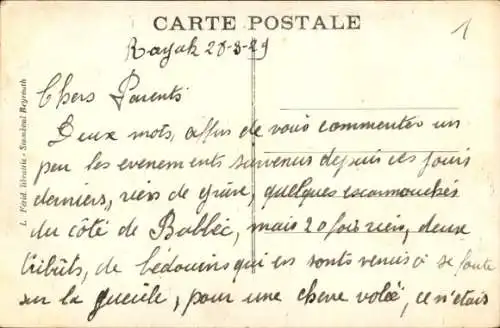 CARTE POSTALE
1
Rayak 28-3-29
L. Férid, librairie - Stamboul Beyrouth
Chers Parents
Deux mots, affin de vous commenter un
peu les evenements survenus depuis ces jours
derniers, riens de grave, quelques escarmouches
du côté de Balbec, mais 20 fois rien, deux
tribûts, de bédouins qui en sonts venus à se foute
sur la gueule, pour une chevre volée, ce n'étais